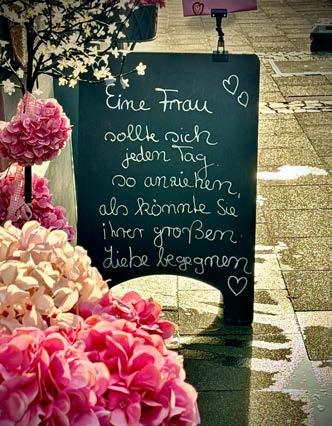 Eine Frau
sollte sich
jeden Tag.
so anziehen,
als könnte Sie
ihrer großen.
Liebe begegnen